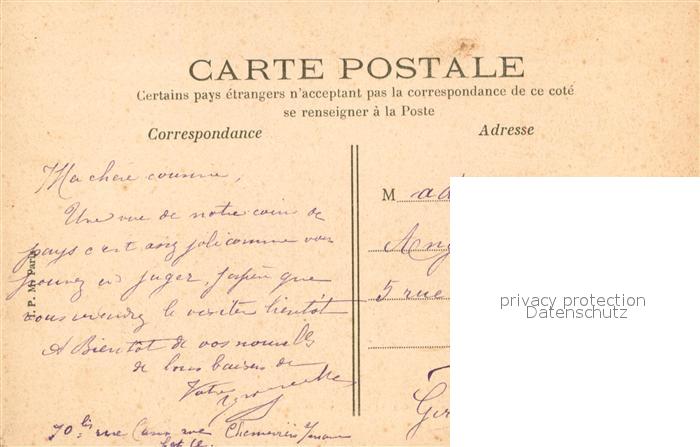 CARTE POSTALE
Certains pays étrangers n'acceptant pas la correspondance de ce coté
se renseigner à la Poste
Correspondance
Adresse
Ma chère cousine,
Une vue de notre coin de
pays c'est assez joli comme vous
pouvez en juger, j'espère que
vous viendrez le visiter bientôt
A Bientôt de vos nouvelles
de bons baisers de
Votre
70 bis rue
M ad
5 rue
P. M. Paris
privacy protection
Datenschutz